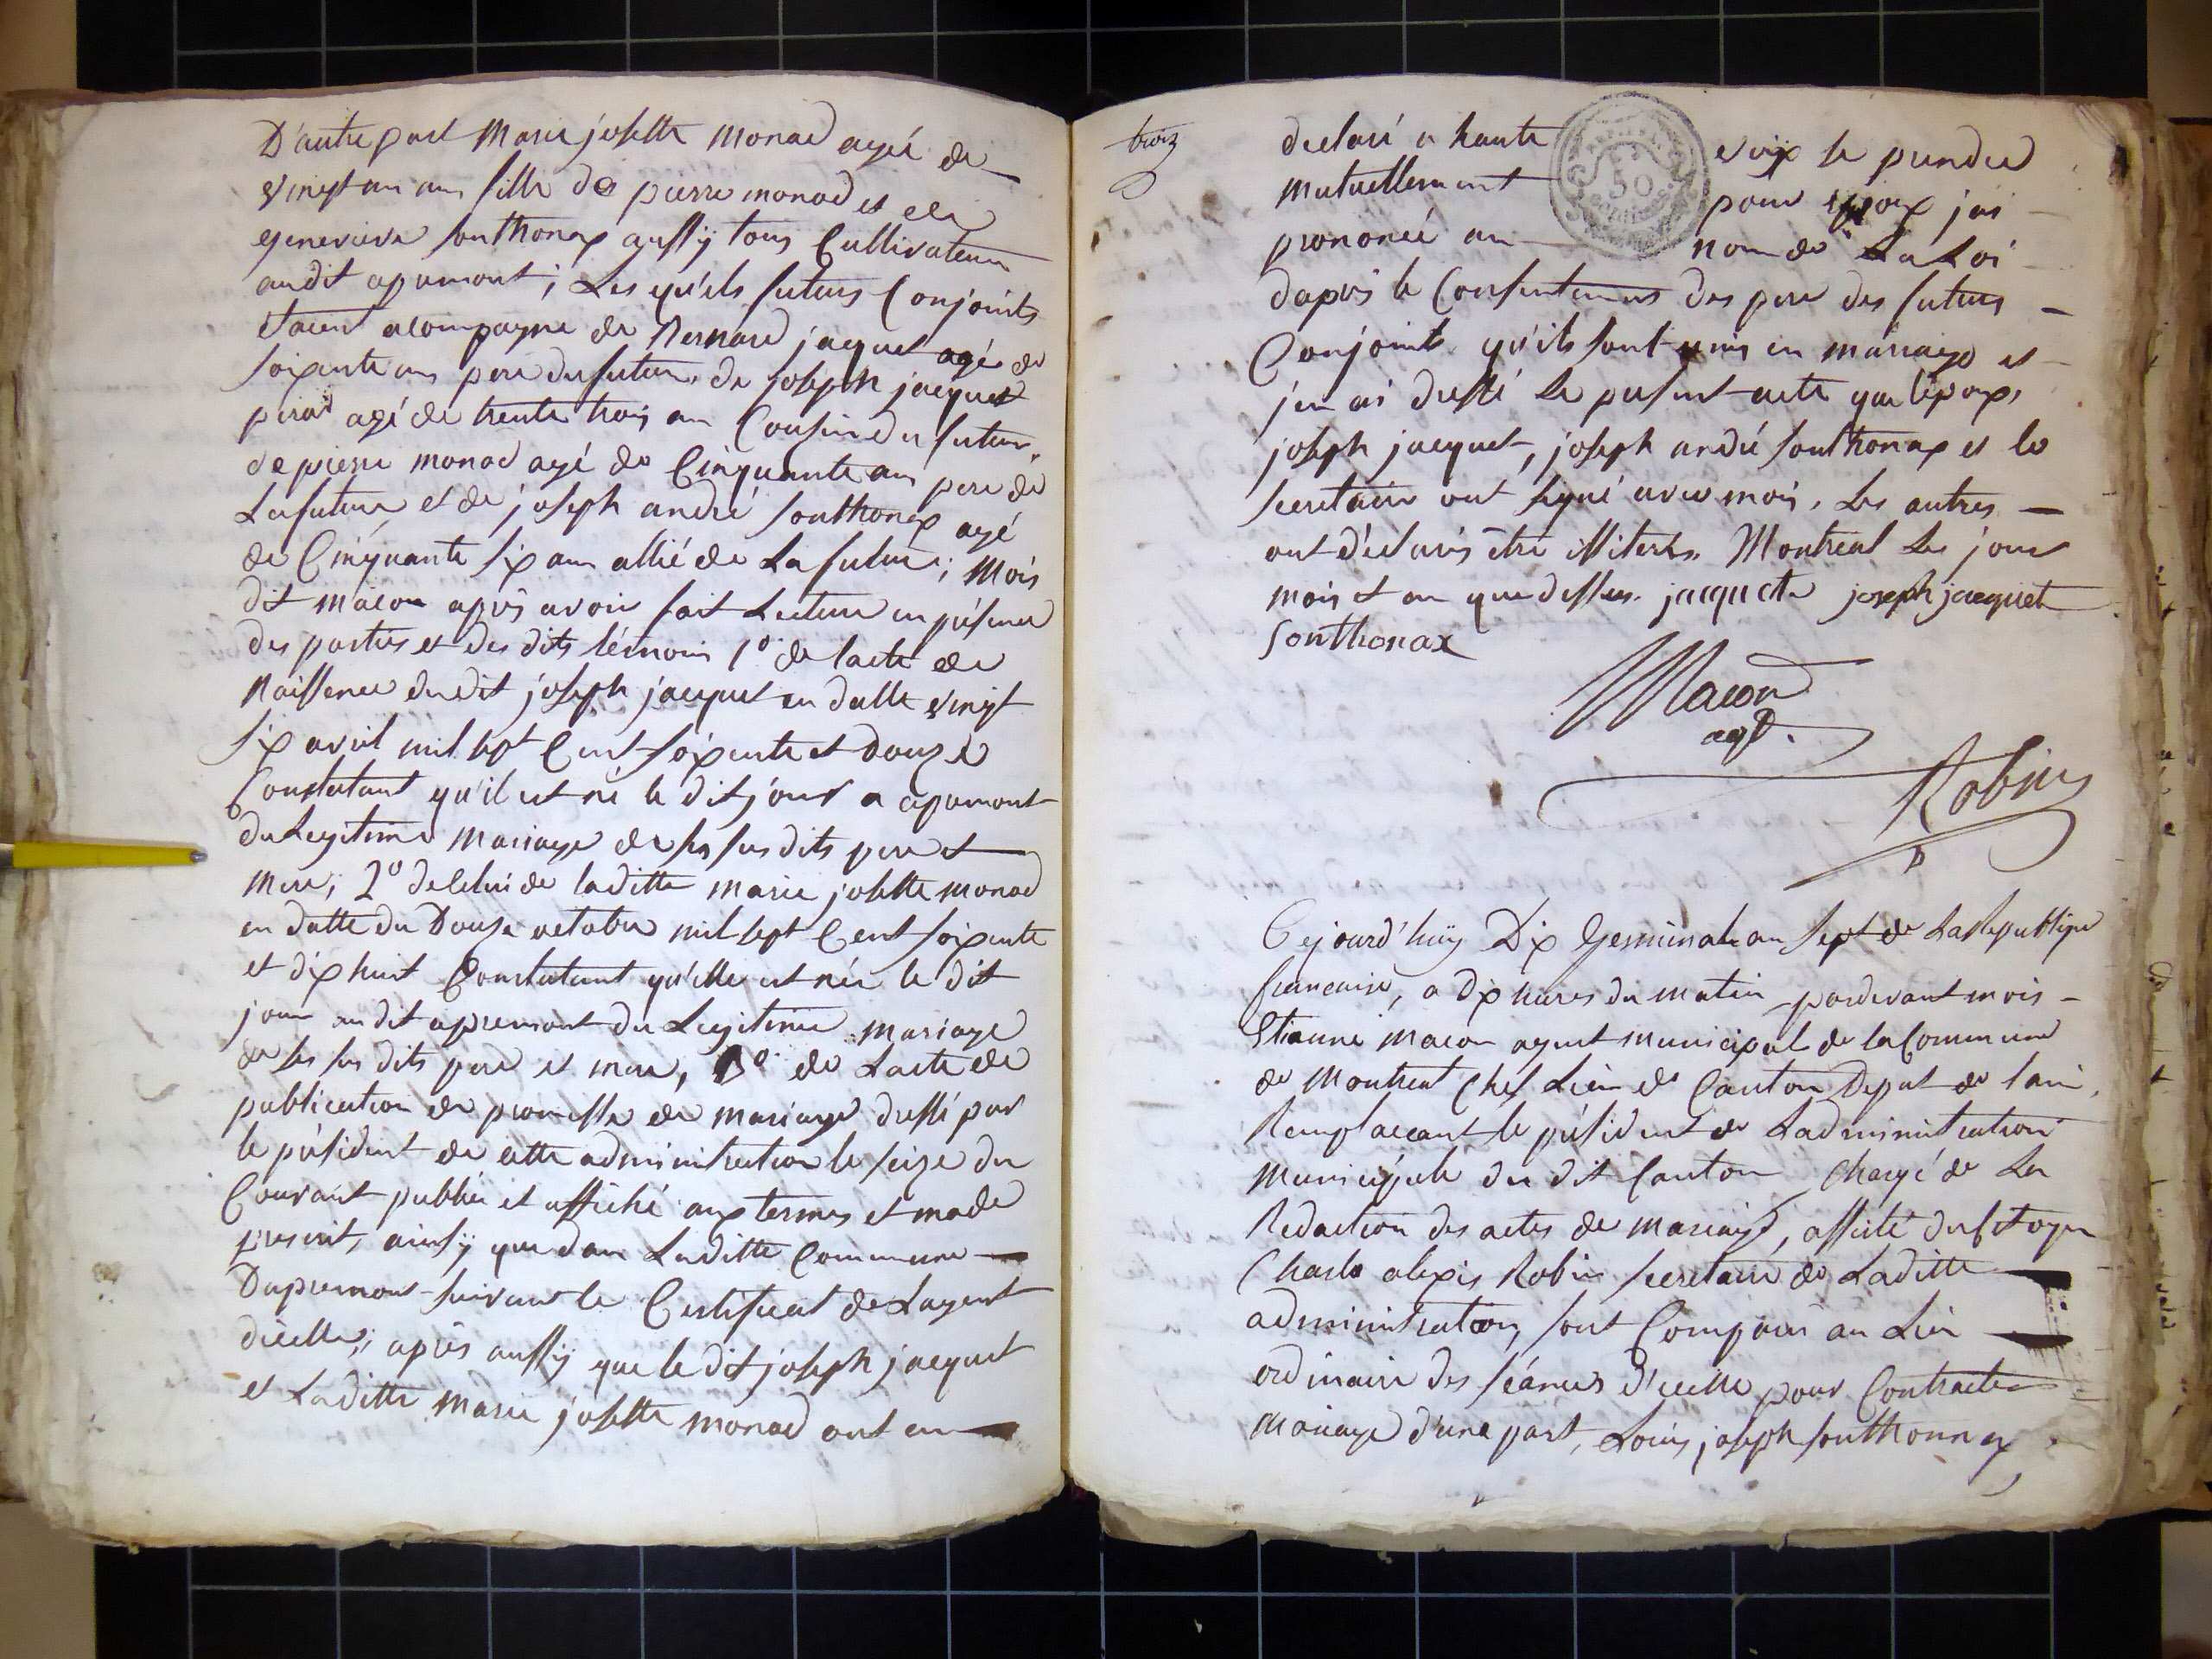 D'autre part Marie josette monad agée de
vingt un ans fille de pierre monad et de
genevieve sonthonax aussÿ tous Cultivateurs
audit apremont; Les qu'els futurs Conjoints
etaient acompagné de Bernard jaquet agé de
soixante ans pere du futur, de joseph jacquet
agé de trente trois an Cousin du futur,
de pierre monad agé de Cinquante ans pere de
La future et de joseph andré sonthonax agé
de Cinquante six ans allié de La future; Mois
dit macon après avoir fait Lecture en présence
des parties et des dits témoins 1º de lacte de
Naissence du dit joseph jacquet en datte vingt
six avril mil sept Cent soixente et douze
Constatant qu'il est né le dit jour a apremont
du Legitime Mariage de ses sus dits pere et
mere; 2º de Celui de laditte marie josette monad
en datte du Douze octobre mil sept Cent soixente
et dix huit Constatant qu'elle est née le dit
jour au dit apremont du Legitime mariage
de ses sus dits pere et mere, de Lacte de
publication de promesse de mariage dressé par
le président de cette administration le seize du
Courant publié et affiché aux termes et mode
prescrits, ainsÿ que dans Laditte Commune
Dapremont suivant le Certificat de Lagent
d'icelle; après aussÿ que le dit joseph jacquet
et Laditte marie josette monad ont eu
trois
declaré a haute voix se prendre
mutuellement pour epoux jai
prononcé au nom de La Loi
dapres le Consentement des pere des futurs
Conjoints qu'ils sont unis en mariage et
j'en ai dressé Le présent acte que l'epoux,
joseph jacquet, joseph andré sonthonax et le
secretaire ont signé avec mois, Les autres
ont déclarés être illiterés. Montreal Les jour
mois et an que dessus. jacquet joseph jacquet
Sonthonax
Macon
agt.
Robin
50
Cejourd'huÿ Dix Germinal an sept de La Republique
francaise, a dix heures du matin pardevant mois
Etienne macon agent municipal de la Commune
de Montreal Chef Lieu de Canton Depart de lain,
Remplaceant le président de Ladministration
municipale du dit Canton Chargé de La
Redaction des actes de mariage, assisté du Citoyen
Charle alexis Robin secretaire de Laditte
administration, sont Comparus au Lieu
ordinaire des séances d'icelle pour Contracter
Mariage d'une part, Louis joseph sonthonnax